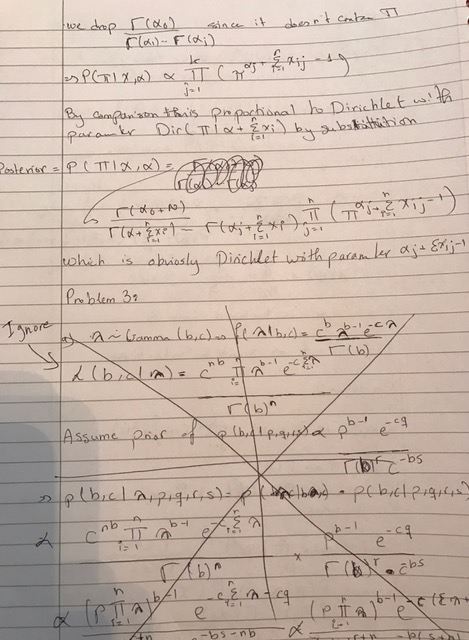 we drop Γ(α₀) / Γ(α₁) – Γ(αⱼ) since it doesn't contain π
⇒ P(π|x,α) ∝ ∏ⱼ₌₁ᵏ (π^(αⱼ + Σᵢ₌₁ⁿ xᵢⱼ – 1))
By comparison this is proportional to Dirichlet with
parameter Dir(π|α + Σᵢ₌₁ⁿ xᵢ) by substitution
Posterior = P(π|x,α) =
Γ(α₀+N) / Γ(α + Σᵢ₌₁ⁿ xᵢ) – Γ(αⱼ + Σᵢ₌₁ⁿ xᵢ) ∏ⱼ₌₁ⁿ (π^(αⱼ + Σᵢ₌₁ⁿ xᵢⱼ – 1))
which is obviously Dirichlet with parameter αⱼ + Σxᵢⱼ – 1
Problem 3:
Ignore
a) λ ~ Gamma(b,c) ⇒ f(λ|b,c) = c^b λ^(b-1) e^(-cλ) / Γ(b)
L(b,c|λ) = c^(nb) ∏ᵢ₌₁ⁿ λ^(b-1) e^(-cΣλ) / Γ(b)ⁿ
Assume prior of p(b,c|p,q,r,s) ∝ p^(b-1) e^(-cq) / Γ(b)^r c^(-bs)
⇒ p(b,c|λ,p,q,r,s) = p( · p(b,c|p,q,r,s)
∝ c^(nb) ∏ᵢ₌₁ⁿ λ^(b-1) e^(-cΣλ) / Γ(b)ⁿ × p^(b-1) e^(-cq) / Γ(b)^r · c^(-bs)
∝ (p ∏ⁿ λ)^(b-1) e^(-cΣλ – cq) ∝ (p ∏ λ)^(b-1) e^(-c(Σλ+